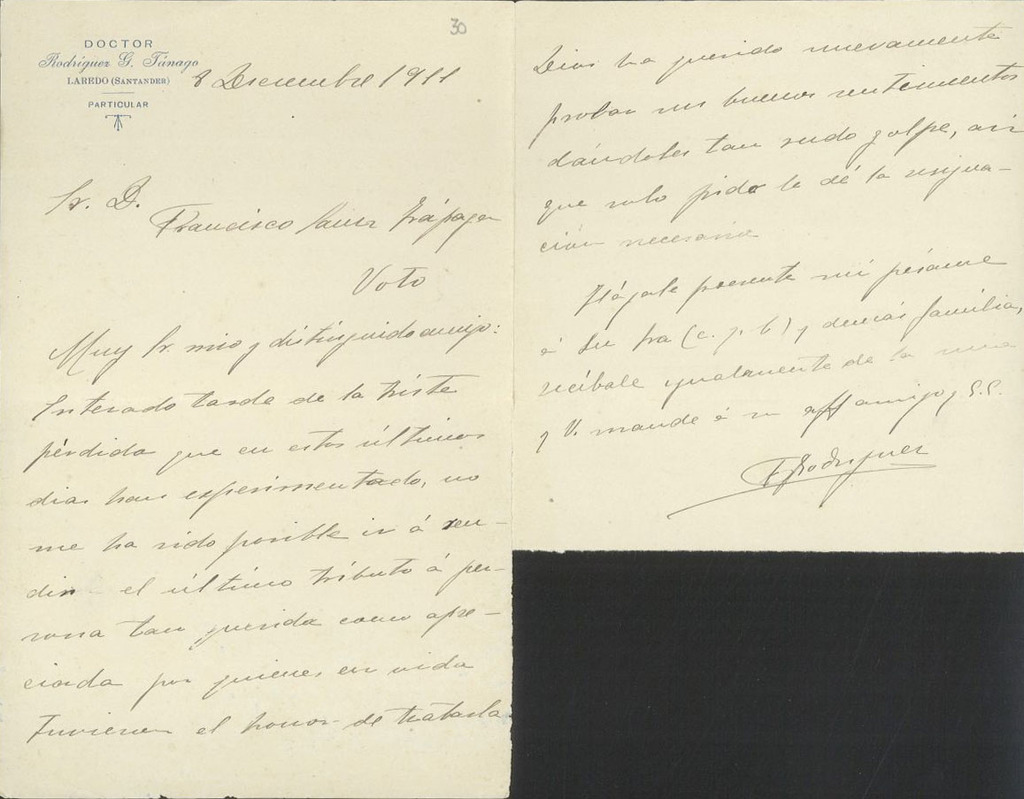 30
DOCTOR
Rodríguez G. Tánago
LAREDO (SANTANDER)
PARTICULAR
8 Diciembre 1911
Sr. D.
Francisco Sainz Trápaga
Voto
Muy Sr. mio y distinguido amigo:
Enterado tarde de la triste
pérdida que en estos últimos
dias han experimentado, no
me ha sido posible ir á ren-
dir el último tributo á per-
sona tan querida como apre-
ciada por quienes en vida
tuvieron el honor de tratarla
Dios ha querido nuevamente
probar sus buenos sentimientos
dándoles tan rudo golpe, asi
que solo pido le dé la resigna-
ción necesaria
Hágale presente mi pésame
á su Sra (c. p. b) y demás familia,
recíbale igualmente de la mia
y V. mande á su aff amigo y S.S.
F Rodriguez